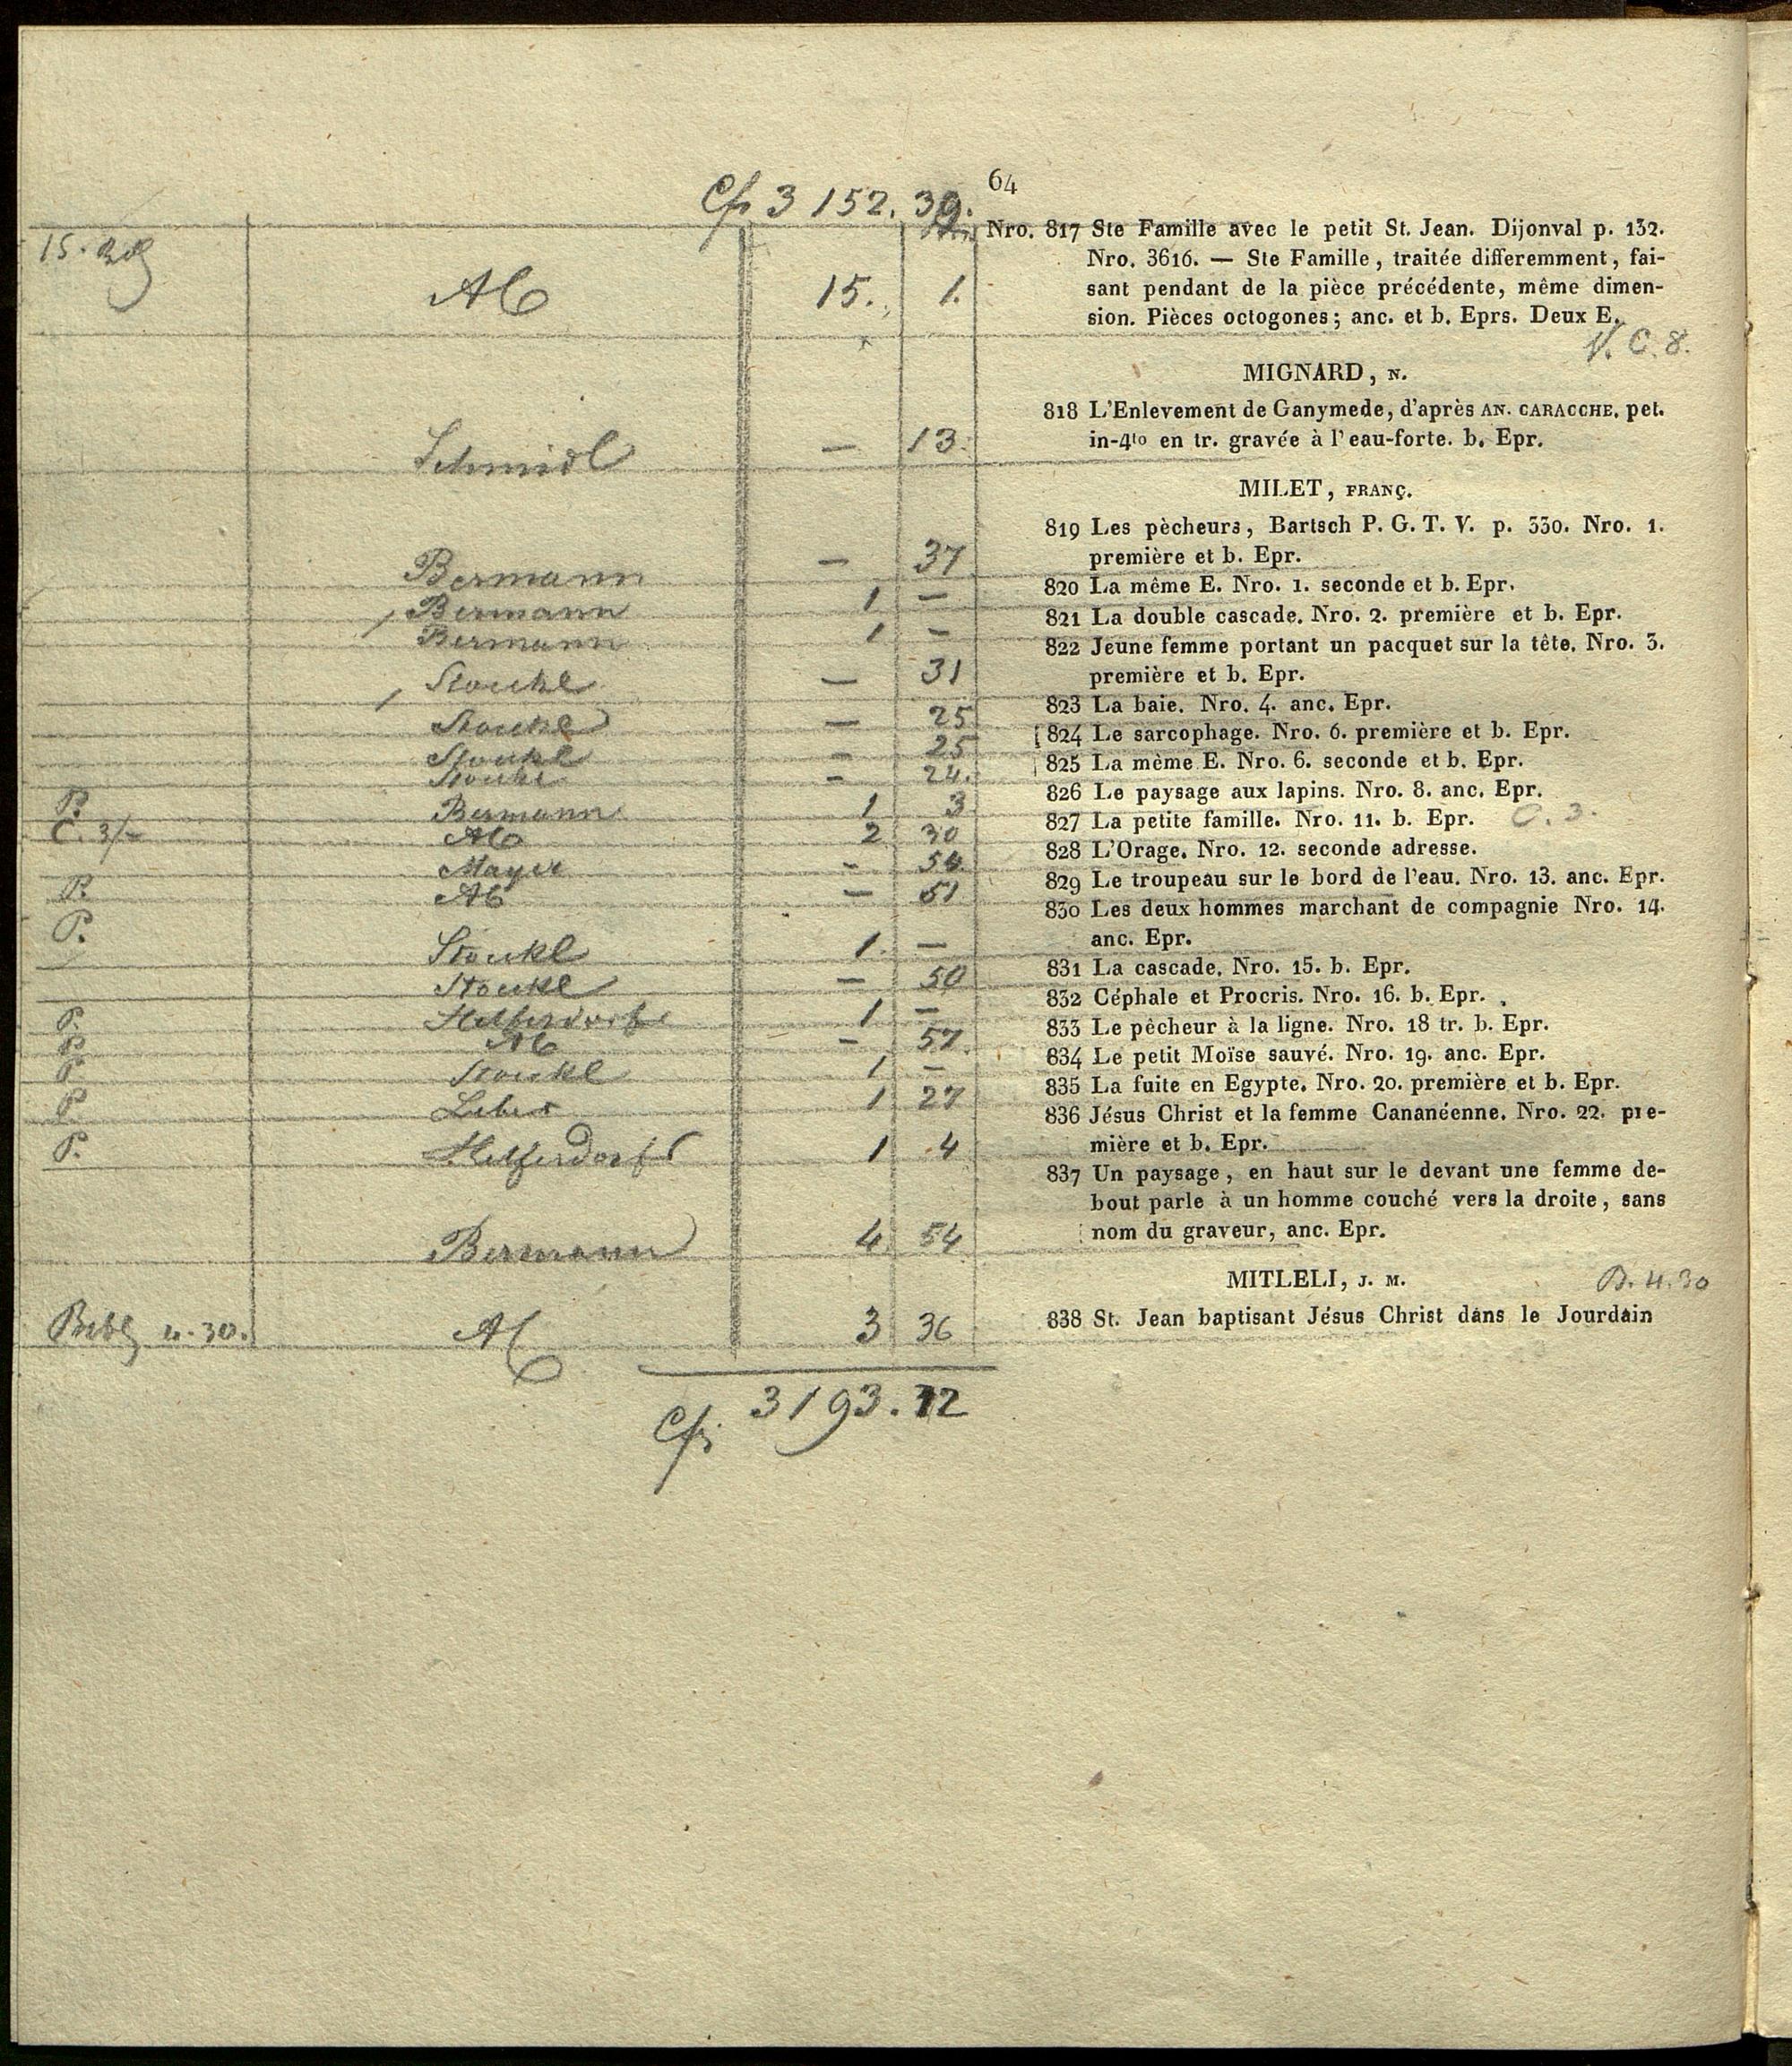 64
Cfr 3152. 39.
Nro. 817 Ste Famille avec le petit St. Jean. Dijonval p. 132.
Nro. 3616. — Ste Famille, traitée differemment, fai-
sant pendant de la pièce précédente, même dimen-
sion. Pièces octogones; anc. et b. Eprs. Deux E.
V. C. 8.
MIGNARD, N.
818 L'Enlevement de Ganymede, d'après AN. CARACCHE, pet.
in-4to en tr. gravée à l'eau-forte. b. Epr.
MILET, FRANÇ.
819 Les pècheurs, Bartsch P. G. T. V. p. 330. Nro. 1.
première et b. Epr.
820 La même E. Nro. 1. seconde et b. Epr.
821 La double cascade. Nro. 2. première et b. Epr.
822 Jeune femme portant un pacquet sur la tête. Nro. 3.
première et b. Epr.
823 La baie. Nro. 4. anc. Epr.
824 Le sarcophage. Nro. 6. première et b. Epr.
825 La mème E. Nro. 6. seconde et b. Epr.
826 Le paysage aux lapins. Nro. 8. anc. Epr.
827 La petite famille. Nro. 11. b. Epr. C. 3.
828 L'Orage. Nro. 12. seconde adresse.
829 Le troupeau sur le bord de l'eau. Nro. 13. anc. Epr.
830 Les deux hommes marchant de compagnie Nro. 14.
anc. Epr.
831 La cascade. Nro. 15. b. Epr.
832 Céphale et Procris. Nro. 16. b. Epr.
833 Le pêcheur à la ligne. Nro. 18 tr. b. Epr.
834 Le petit Moïse sauvé. Nro. 19. anc. Epr.
835 La fuite en Egypte. Nro. 20. première et b. Epr.
836 Jésus Christ et la femme Cananéenne. Nro. 22. pre-
mière et b. Epr.
837 Un paysage, en haut sur le devant une femme de-
bout parle à un homme couché vers la droite, sans
nom du graveur, anc. Epr.
MITLELI, J. M. B. 4.30
838 St. Jean baptisant Jésus Christ dans le Jourdain
15. AC 15. 1.
Schmidl — 13.
Bermann — 37
Bermann 1 —
Bermann 1 —
Stoukl — 31
Stoukl — 25
Stoukl — 25
Stoukl — 24.
P. Bermann 1 3
C. 3/- AC 2 30
Mayer — 54
P. AC — 51
P. Stoukl 1. —
Stoukl — 50
P. Helferdorf 1 —
P. AC — 57.
P. Stoukl 1 —
P. 1 27
P. Helferdorf 1 4
Bermann 4 54
4.30. AC 3 36
Cfr 3193. 12